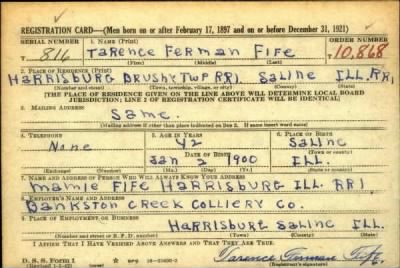 REGISTRATION CARD—(Men born on or after February 17, 1897 and on or before December 31, 1921)
SERIAL NUMBER 1. NAME (Print) ORDER NUMBER
T 816 Tarence Ferman Fife T 10,868
(First) (Middle) (Last)
2. PLACE OF RESIDENCE (Print)
Harrisburg Brushy Twp RR1. Saline Ill. RR1
(Number and street) (Town, township, village, or city) (County) (State)
[THE PLACE OF RESIDENCE GIVEN ON THE LINE ABOVE WILL DETERMINE LOCAL BOARD
JURISDICTION; LINE 2 OF REGISTRATION CERTIFICATE WILL BE IDENTICAL]
3. MAILING ADDRESS
Same.
(Mailing address if other than place indicated on line 2. If same insert word same)
4. TELEPHONE 5. AGE IN YEARS 6. PLACE OF BIRTH
None 42 Saline
DATE OF BIRTH (Town or county)
Jan 2 1900 Ill.
(Exchange) (Number) (Mo.) (Day) (Yr.) (State or country)
7. NAME AND ADDRESS OF PERSON WHO WILL ALWAYS KNOW YOUR ADDRESS
Mamie Fife Harrisburg Ill. RR1
8. EMPLOYER'S NAME AND ADDRESS
Bankston Creek Colliery Co.
9. PLACE OF EMPLOYMENT OR BUSINESS
Harrisburg Saline Ill.
(Number and street or R. F. D. number) (Town) (County) (State)
I AFFIRM THAT I HAVE VERIFIED ABOVE ANSWERS AND THAT THEY ARE TRUE.
D. S. S. Form 1 Tarence Ferman Fife
(Registrant's signature)